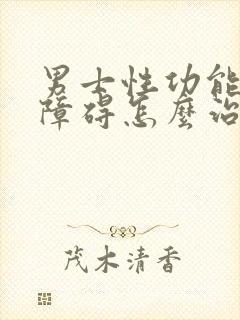 男士性功能
障碍怎麽治
茂木清香